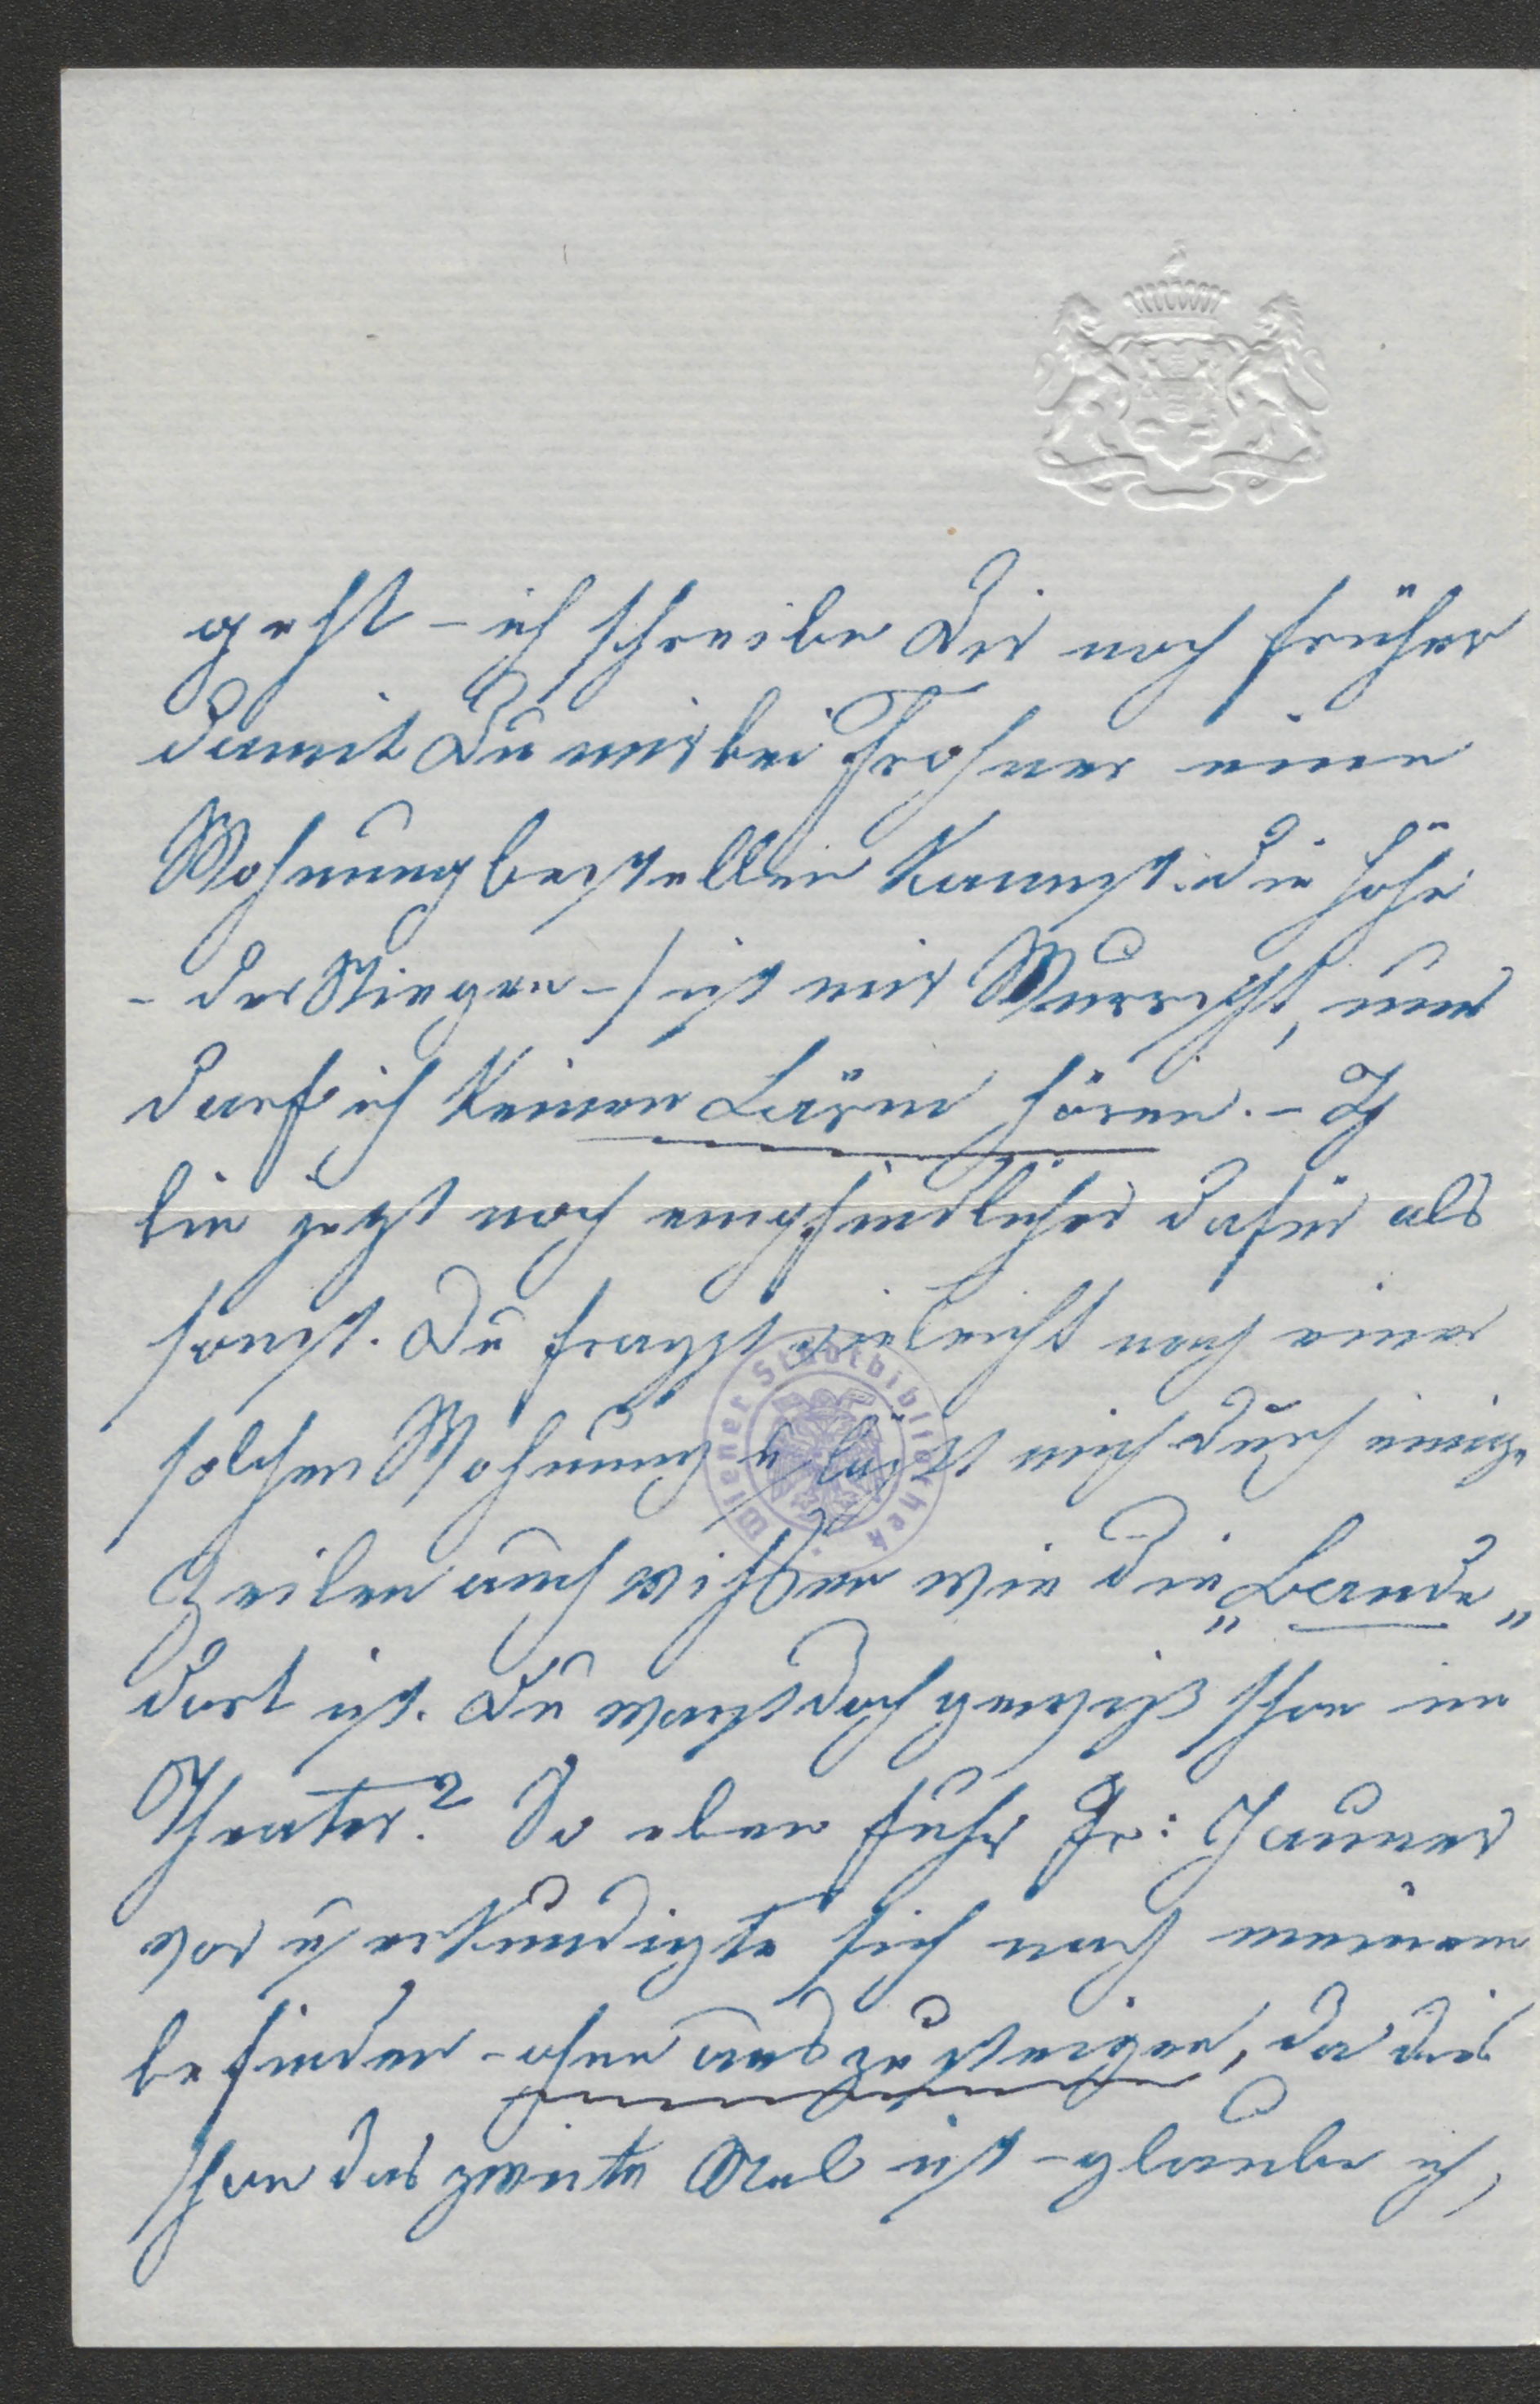 geht – ich schreibe Dir noch früher
damit Du mir bei Frohner eine
Wohnung bestellen kannst. Die Höhe
– der Stiegen – ist mir Wurscht, nur
darf ich keinen Lärm hören. – Ich
bin jezt noch empfindlicher dafür als
sonst. Du fragst vieleicht nach einer
solchen Wohnung u läßt mich durch einige
Zeilen auch wissen wie die „Bande„
dort ist. Du warst doch gewiß schon im
Theater? So eben fuhr Fr: Jauner
vor u erkundigte sich nach meinem
befinden – ohne auszusteigen, da dies
schon das zweite Mal ist – glaube ich,
Wiener Stadtbibliothek